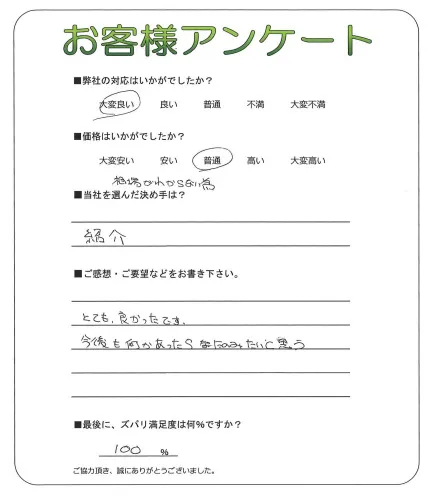 お客様アンケート
■弊社の対応はいかがでしたか？
大変良い 良い 普通 不満 大変不満
■価格はいかがでしたか？
大変安い 安い 普通 高い 大変高い
相場がわからない為
■当社を選んだ決め手は？
紹介
■ご感想・ご要望などをお書き下さい。
とても、良かったです。
今後も何かあったらたのみたいと思う
■最後に、ズバリ満足度は何%ですか？
100 %
ご協力頂き、誠にありがとうございました。